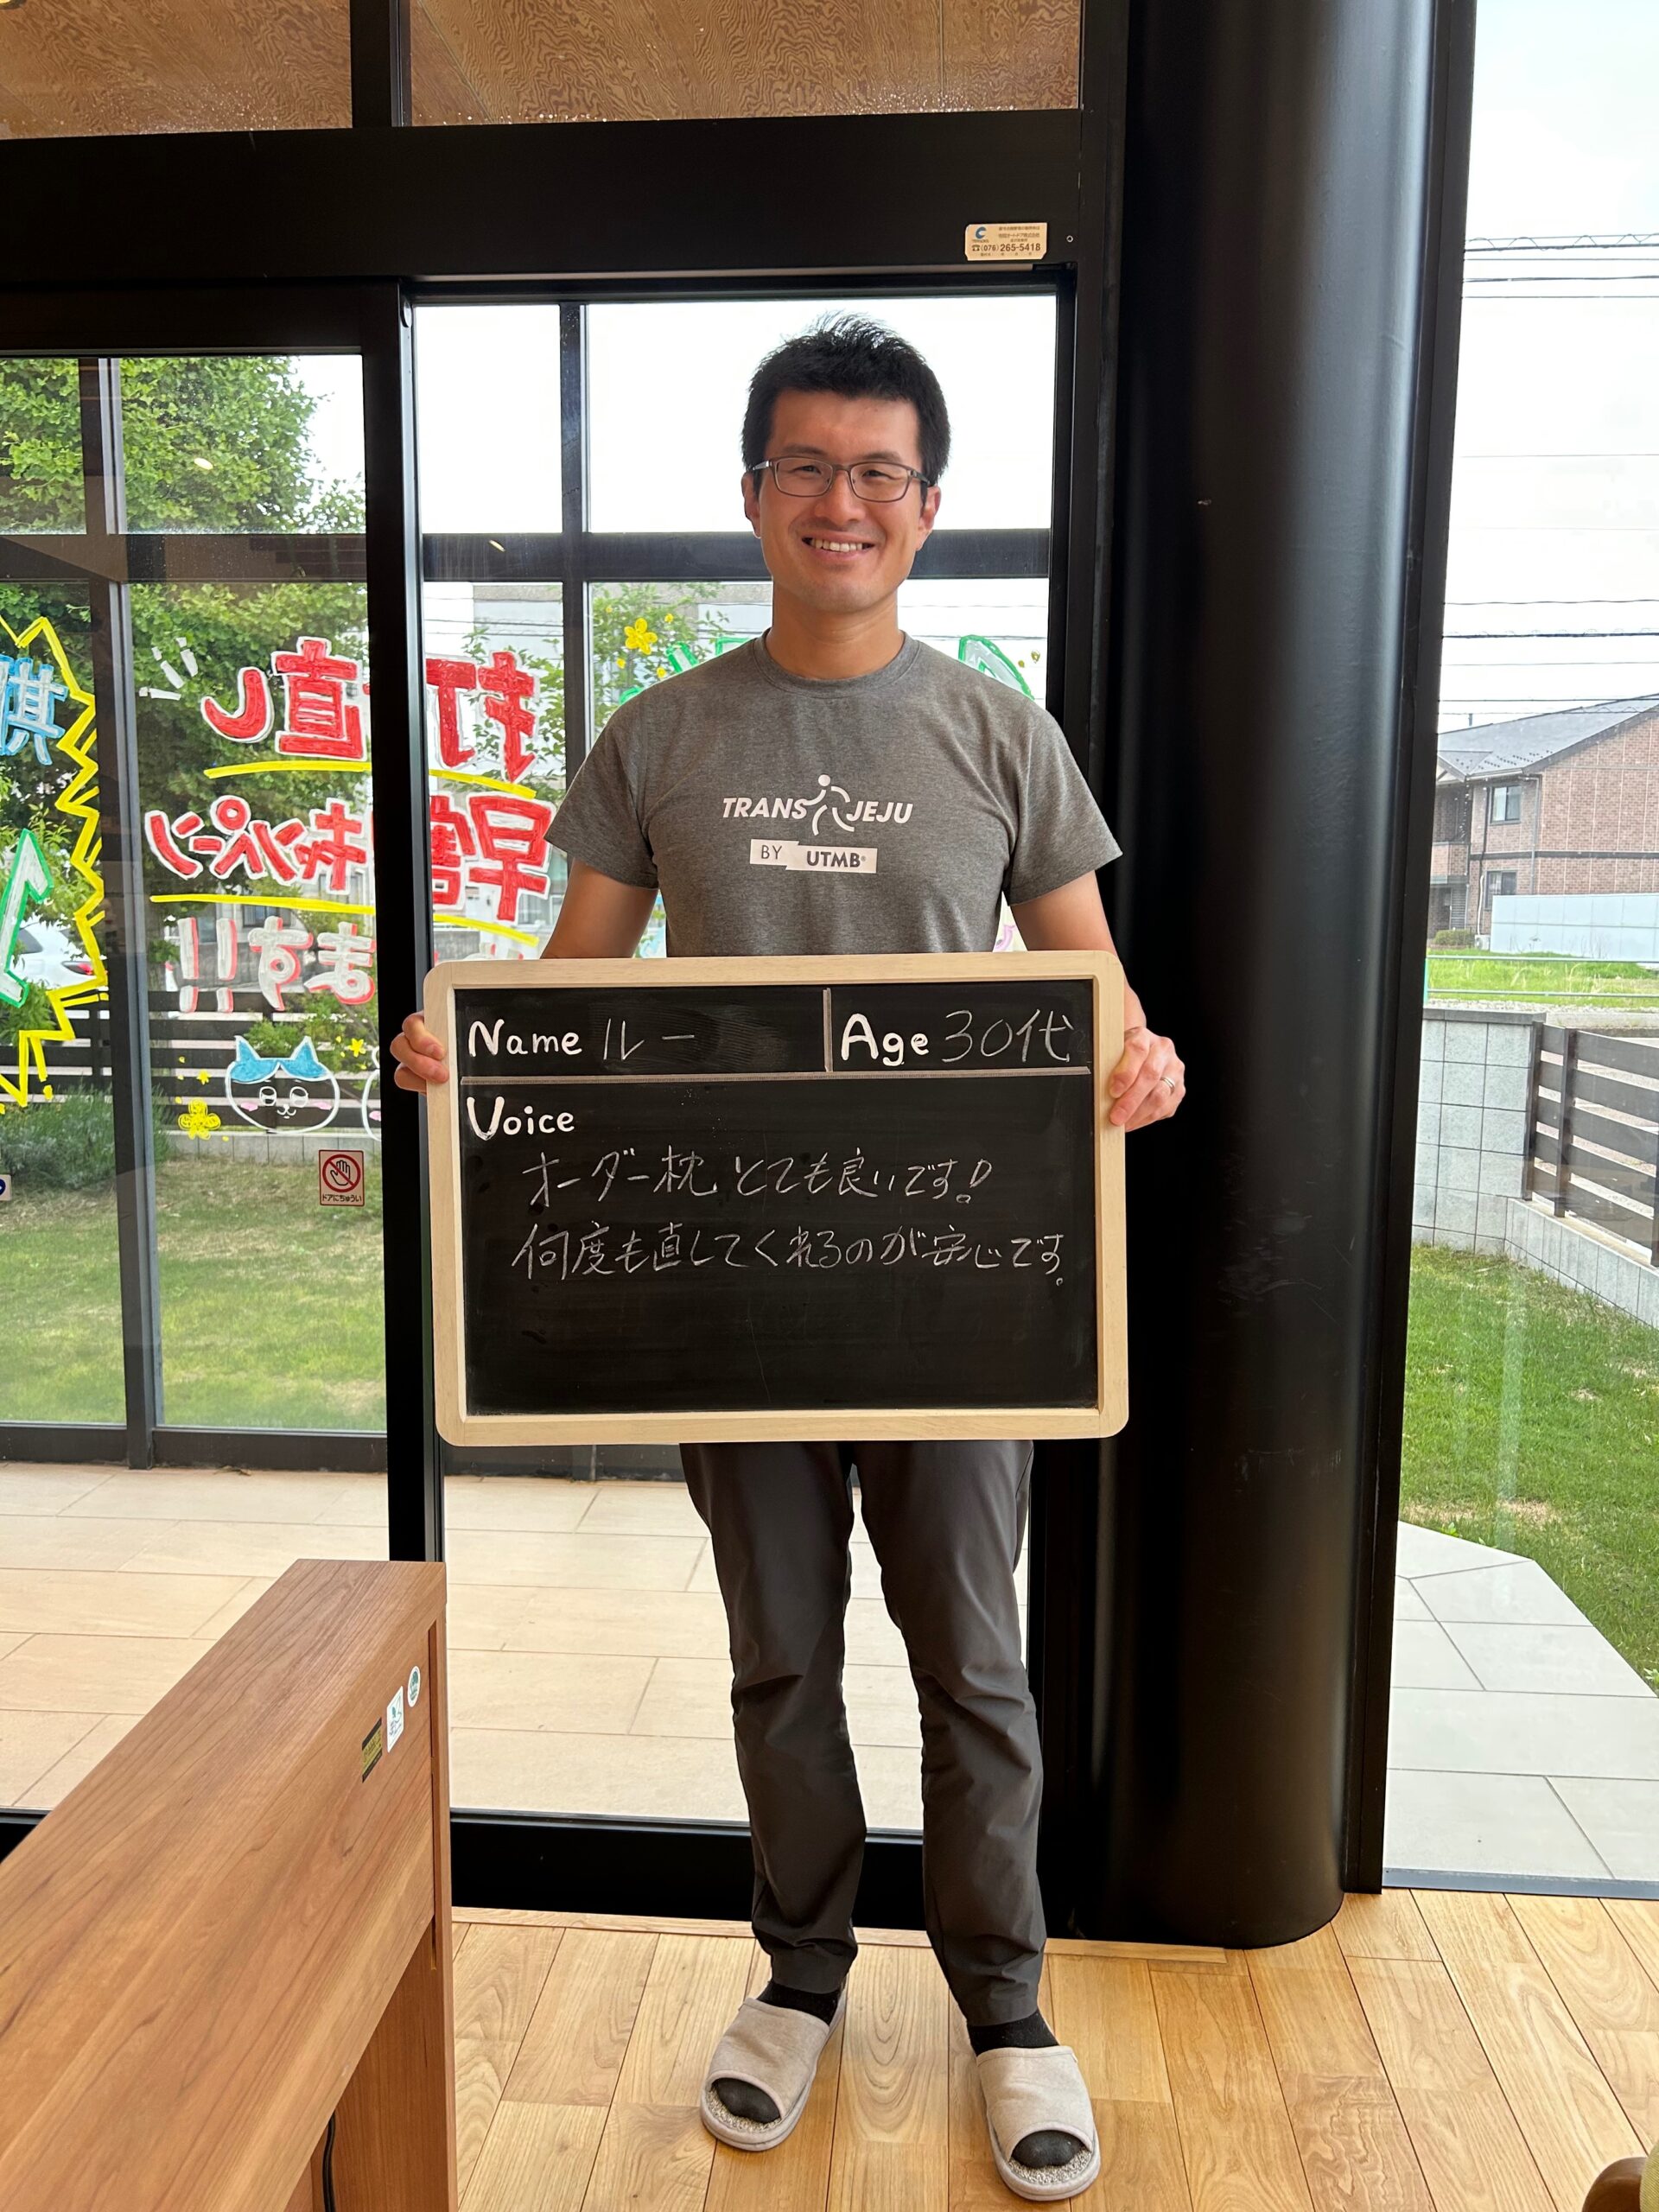 (076)265-5418
打直し
早割キャンペーン
ます!!
TRANS JEJU
BY UTMB
Name ルー
Age 30代
Voice
オーダー枕 とても良いです!
何度も直してくれるのが安心です。
ドアにちゅうい